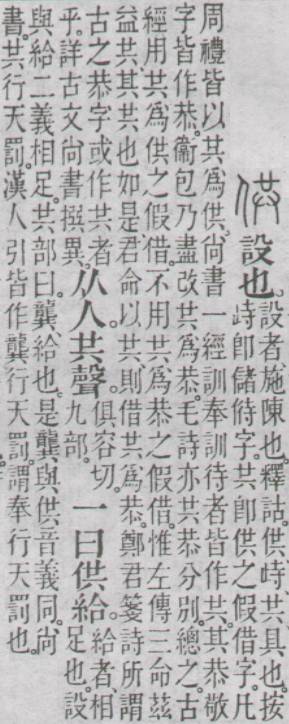 供 設也。設者、施陳也。釋詁。供、峙、共、具也。按
峙卽儲偫字。共卽供之假借字。凡
周禮皆以共爲供。尚書一經訓奉訓待者皆作共。其恭敬
字皆作恭。衞包乃盡改共爲恭。毛詩亦共恭分別。總之古
經用共爲供之假借。不用共爲恭之假借。惟左傳三命茲
益共其共也如是。君命以共。則借共爲恭。鄭君箋詩所謂
古之恭字或作共者
乎。詳古文尚書撰異。
从人共聲。俱容切。
九部。
一曰供給。給者、相
足也。設
與給二義相足。共部曰。龔、給也。是龔與供音義同。尚
書。共行天罰。漢人引皆作龔行天罰。謂奉行天罰也。